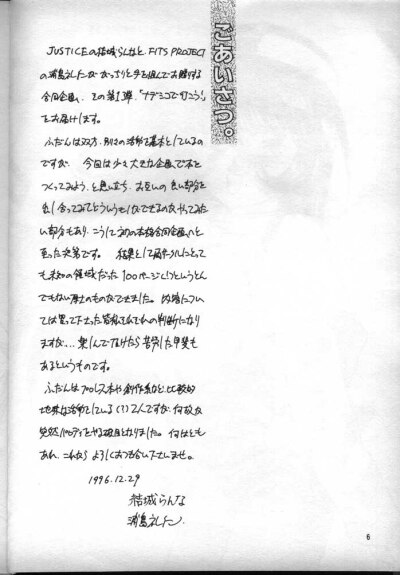 ごあいさつ。
JUSTICEの結城らんなと、FITS PROJECT
の浦島礼仁ががっちりと手を組んでお贈する
合同企画、その第1弾、「ナデシコで行こう!」
をお届けします。
ふだんは双方、別々の活動を基本としているの
ですが、今回は少々大きな企画で本を
つくってみよう、と思い立ち、お互いの良い部分を
出し合ってみてどういうものができるのかやってみた
い部分もあり、こうして初の本格合同企画へと
至った次第です。結果として両サークルにとって
も未知の領域だった100ページというとん
でもない厚さのものができました。内容につい
ては買って下さった皆様それぞれの判断になり
ますが…楽しんで頂けたら苦労した甲斐も
あるというものです。
ふだんはプロレス本や創作系など、比較的
地味な活動をしている(?)2人ですが、何故か
突然パロディをやる破目となりました。何はとも
あれ、これから よろしくおつき合い下さいませ。
1996.12.29
結城らんな
浦島
6